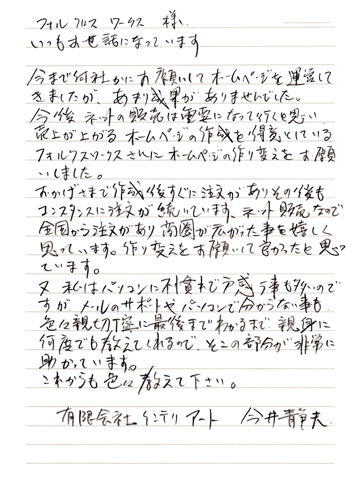 フォルクスワークス 様
いつもお世話になっています
今まで何社かにお願いしてホームページを運営して
きましたが、あまり成果がありませんでした。
今後 ネットの販売は重要になって行くと思い
売上が上がる ホームページの作成を得意としている
フォルクスワークスさんにホームページの作り変えをお願
いしました。
おかげさまで作成後すぐに注文がありその後も
コンスタンスに注文が続いています、ネット販売なので
全国から注文があり商圏が広がった事を嬉しく
思っています。作り変えをお願いして良かったと思っ
ています。
又 私はパソコンに不慣れで戸惑う事も多いので
すが メールのサポートやパソコンで分からない事も
色々親切丁寧に最後までわかるまで 親身に
何度でも教えてくれるので、そこの部分が非常に
助かっています。
これからも色々教えて下さい。
有限会社インテリアート 今井静夫